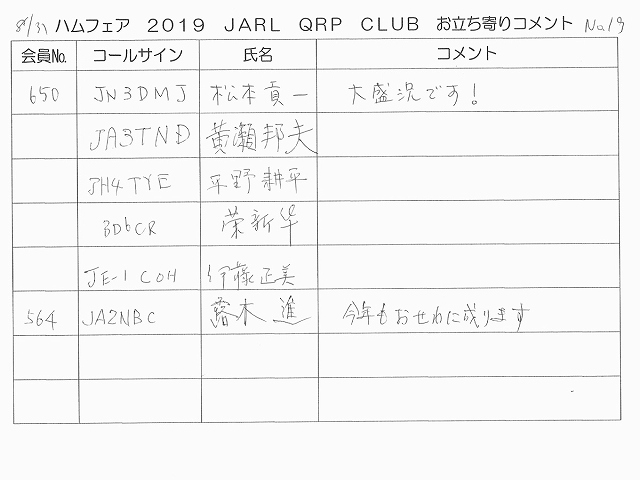 8/31 ハムフェア 2019 JARL QRP CLUB お立ち寄りコメント No19
会員No. コールサイン 氏名 コメント
650 JN3DMJ 松本貢一 大盛況です!
JA3TND 黄瀬邦夫
JH4TYE 平野耕平
BD6CR 荣新华
JE-1COH 伊藤正美
564 JA2NBC 木進 今年もおせわに成ります